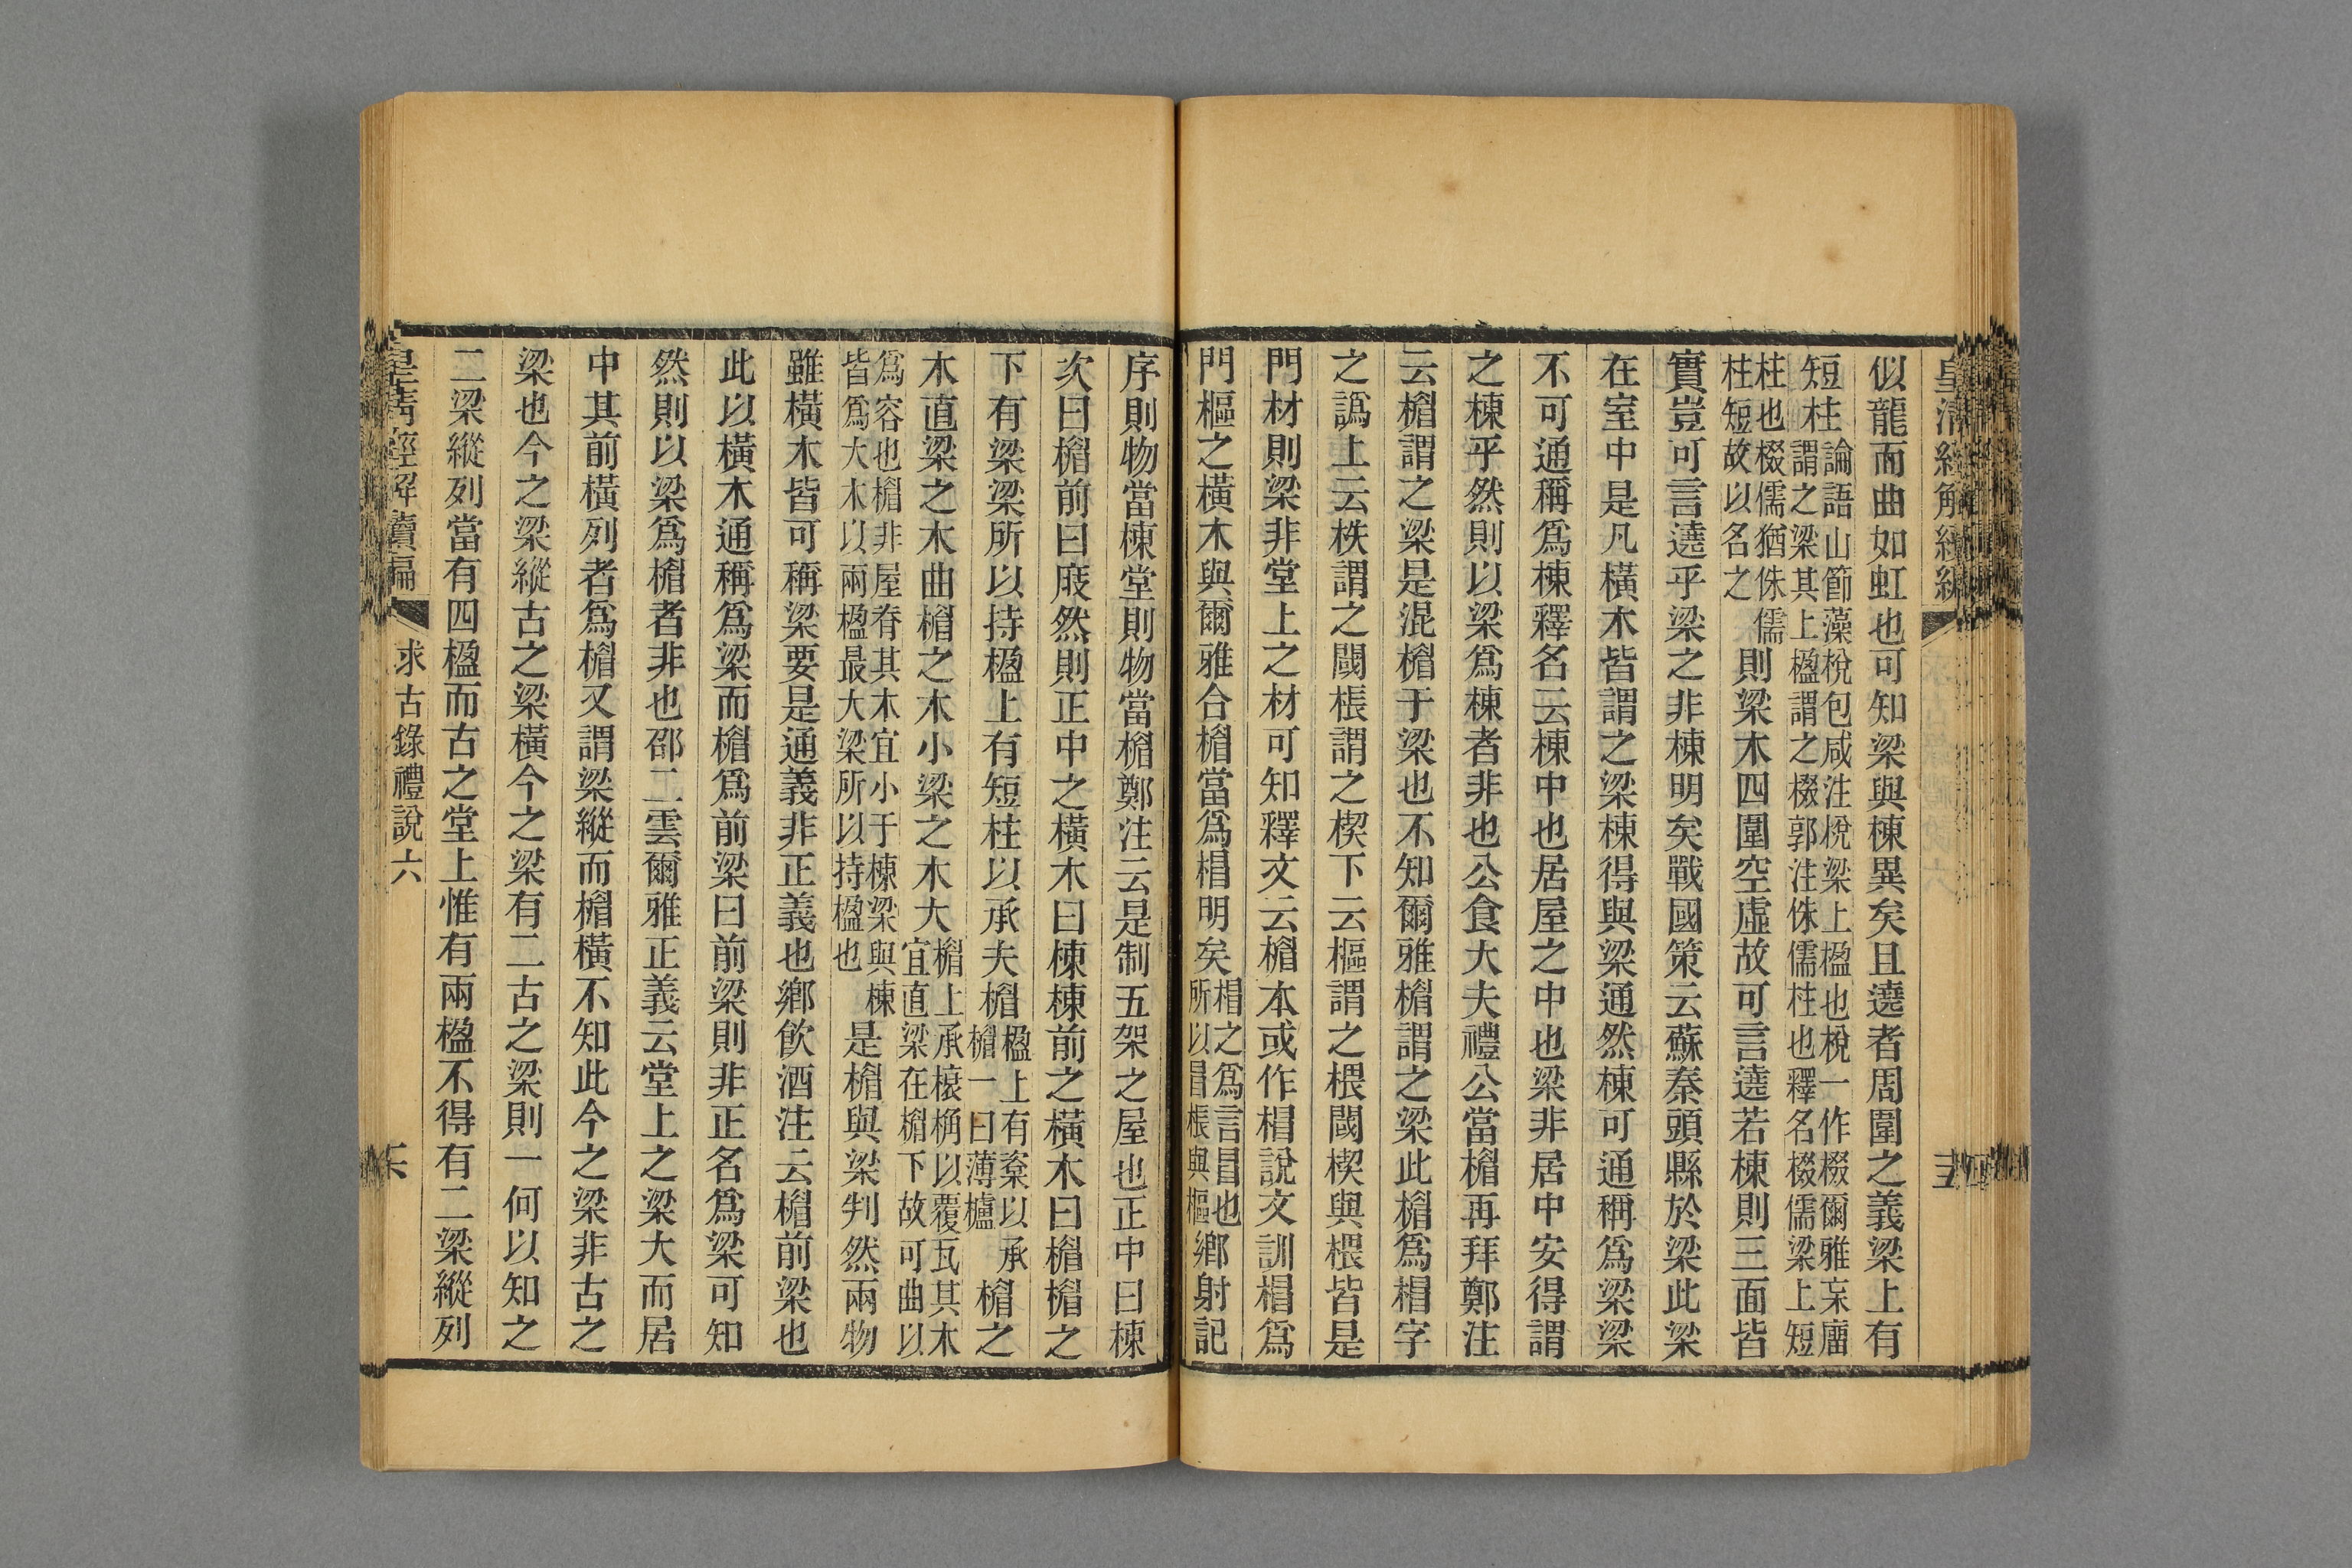 似龍而曲如虹也可知梁與棟異矣且遶者周圍之義梁上有
短柱論語山節藻梲包咸注梲梁上楹也梲一作棳爾雅宗廇謂之梁其上楹謂之棳郭注侏儒柱也釋名棳儒梁上短
柱也棳儒猶侏儒柱短故以名之則梁木四圍空虛故可言遶若棟則三面皆
實豈可言遶乎梁之非棟明矣戰國策云蘇秦頭縣於梁此梁
在室中是凡橫木皆謂之梁棟得與梁通然棟可通稱爲梁梁
不可通稱爲棟釋名云棟中也居屋之中也梁非居中安得謂
之棟乎然則以梁爲棟者非也公食大夫禮公當楣再拜鄭注
云楣謂之梁是混楣于梁也不知爾雅楣謂之梁此楣爲梠字
之譌上云柣謂之閾棖謂之楔下云樞謂之椳閾楔與椳皆是
門材則梁非堂上之材可知釋文云楣本或作梠說文訓梠爲
門樞之橫木與爾雅合楣當爲梠明矣梠之爲言冒也所以冒棖與樞鄉射記
序則物當棟堂則物當楣鄭注云是制五架之屋也正中曰棟
次曰楣前曰庪然則正中之橫木曰棟棟前之橫木曰楣楣之
下有梁梁所以持楹上有短柱以承夫楣楹上有楶以承楣一曰薄櫨楣之
木直梁之木曲楣之木小梁之木大楣上承榱桷以覆瓦其木宜直梁在楣下故可曲以
爲容也楣非屋脊其木宜小于棟梁與棟皆爲大木以兩楹最大梁所以持楹也是楣與梁判然兩物
雖橫木皆可稱梁要是通義非正義也鄉飲酒注云楣前梁也
此以橫木通稱爲梁而楣爲前梁曰前梁則非正名爲梁可知
然則以梁爲楣者非也邵二雲爾雅正義云堂上之梁大而居
中其前橫列者爲楣又謂梁縱而楣橫不知此今之梁非古之
梁也今之梁縱古之梁橫今之梁有二古之梁則一何以知之
二梁縱列當有四楹而古之堂上惟有兩楹不得有二梁縱列
皇清經解續編
求古錄禮說六